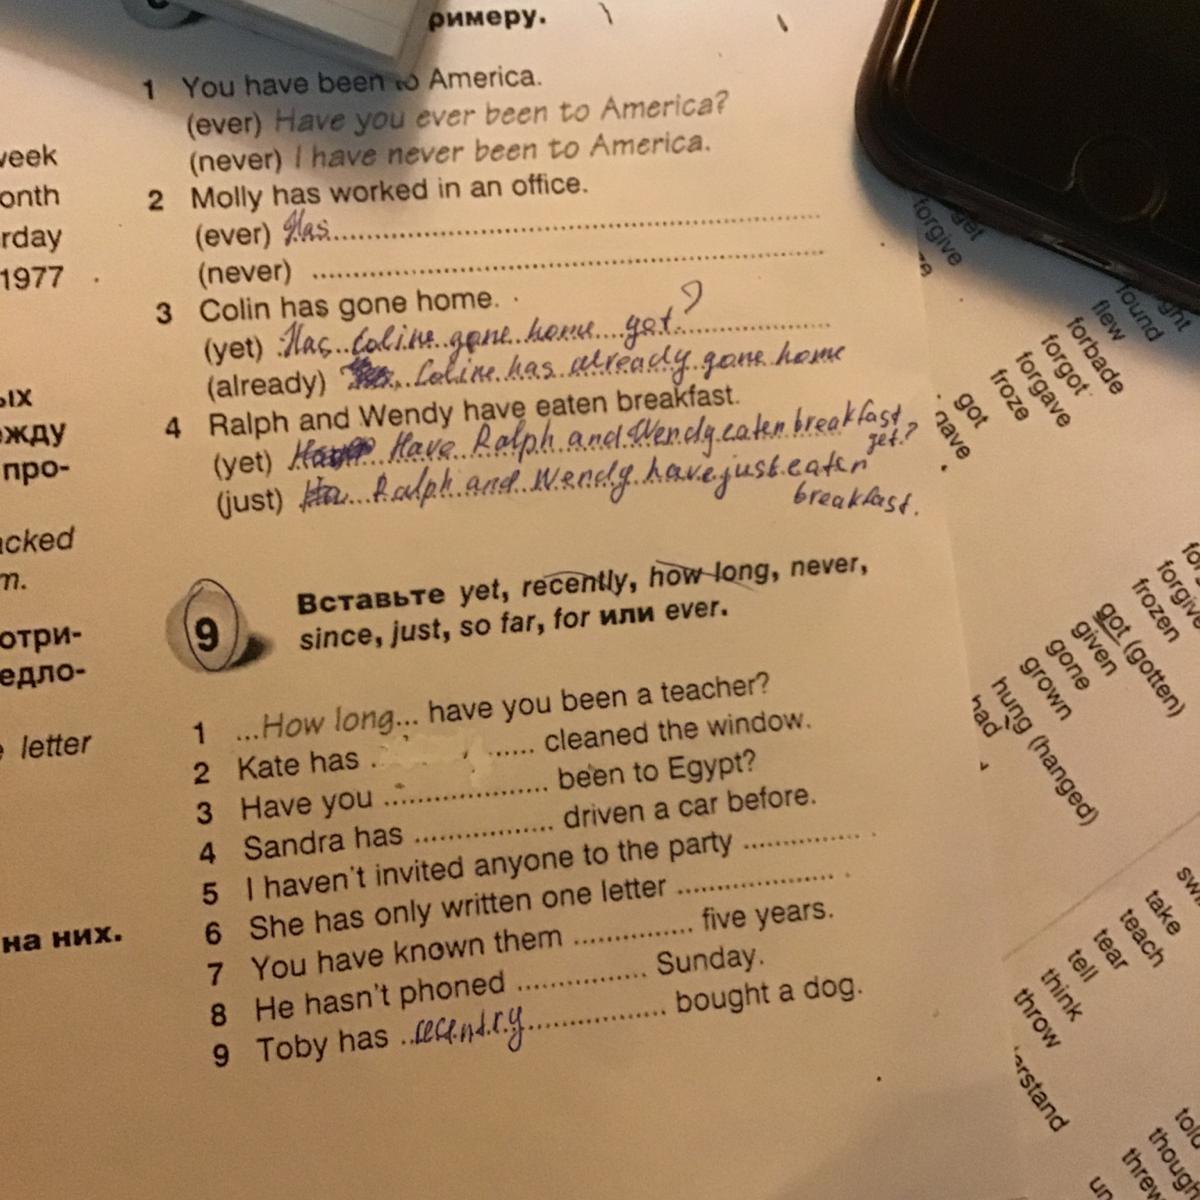 римеру.
1 You have been to America.
(ever) Have you ever been to America?
(never) I have never been to America.
2 Molly has worked in an office.
(ever) Has
(never)
3 Colin has gone home.
(yet) Has Coline gone home yet?
(already) Coline has already gone home
4 Ralph and Wendy have eaten breakfast.
(yet) Have Ralph and Wendy eaten breakfast
yet?
(just) Ralph and Wendy have just eaten
breakfast.
9 Вставьте yet, recently, how long, never,
since, just, so far, for или ever.
1 ...How long... have you been a teacher?
2 Kate has ...... cleaned the window.
3 Have you .................. been to Egypt?
4 Sandra has ............... driven a car before.
5 I haven't invited anyone to the party ............... .
6 She has only written one letter .................... .
7 You have known them ............... five years.
8 He hasn't phoned ................ Sunday.
9 Toby has ..recently................ bought a dog.
week
onth
rday
1977
ых
жду
про-
acked
m.
отри-
едло-
letter
на них.
get
forgive
ght
found
flew
forbade
forgot
forgave
froze
got
gave
forgive
frozen
got (gotten)
given
gone
grown
hung (hanged)
had
take
teach
tear
tell
think
throw
erstand
told
though
threw